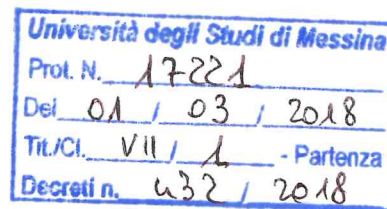 Università degli Studi di Messina
Prot. N. 17221
Del 01 / 03 / 2018
Tit./Cl. VII / 1 - Partenza
Decreti n. 432 / 2018